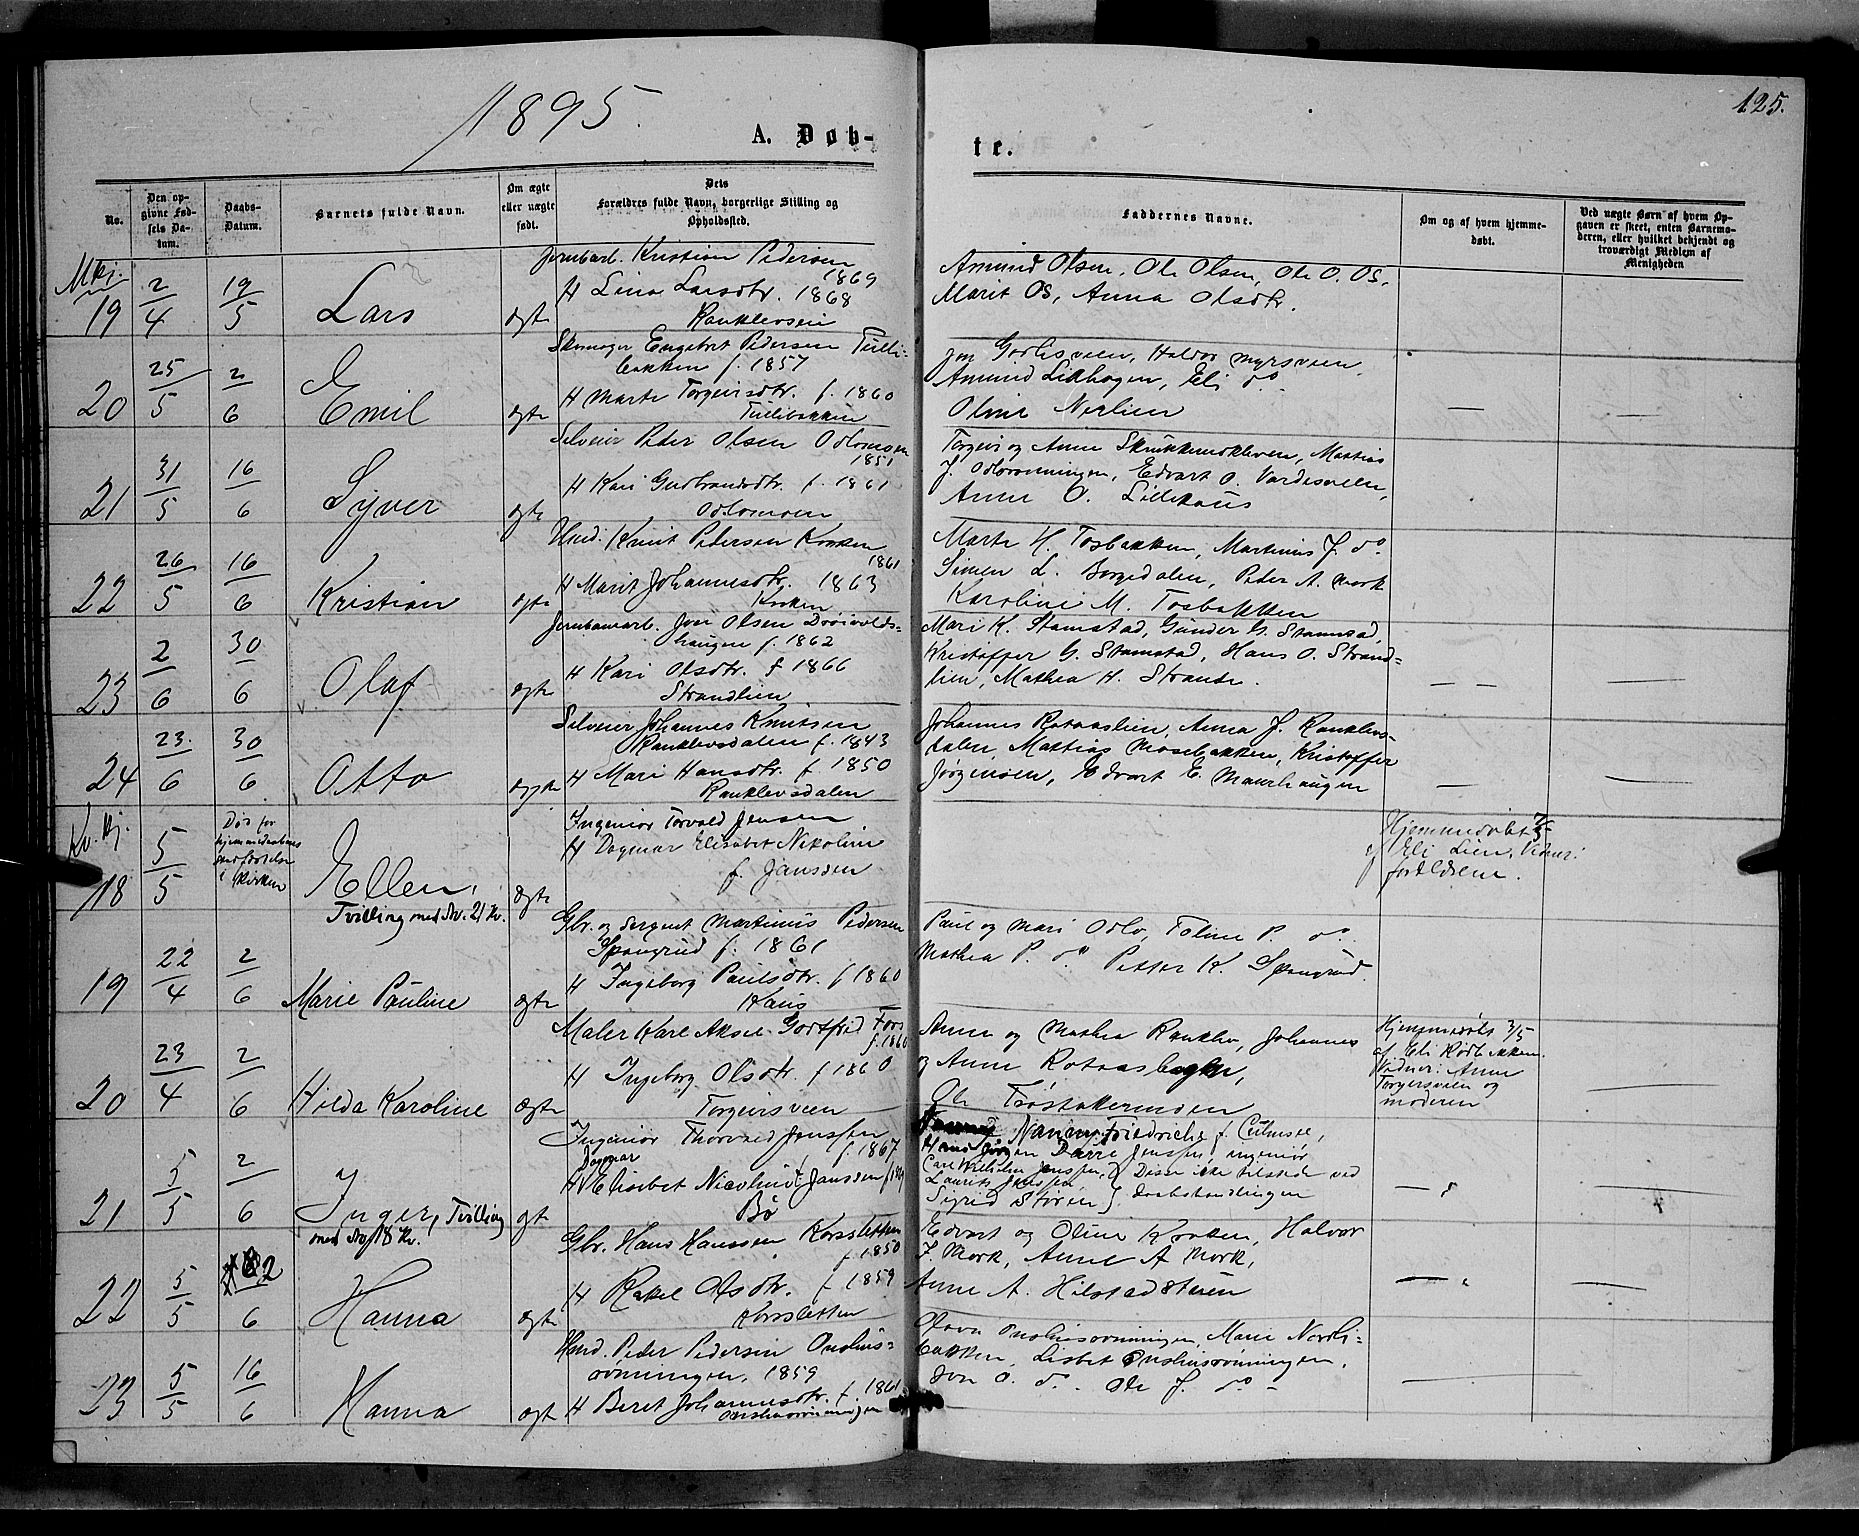 1895.
125.
A. Døb-
te.
No.
Den op-
givne Fød-
sels Da-
tum.
Daabs-
Datum.
Barnets fulde Navn.
Om ægte
eller uægte
født.
Dets
Forældres fulde Navn, borgerlige Stilling og
Opholdssted.
Faddernes Navne.
Om og af hvem hjemme-
døbt.
Ved uægte Børn af hvem Op-
gaven er skeet, enten Barnemo-
deren, eller hvilket bekjendt og
troværdigt Medlem af
Menigheden
Mkj.
19
2/4
19/5
Lars
ægte
Jernbarb. Kristian Pedersen
1869
H Lina Larsdtr. 1868
Ranklevseie
Amund Olsen, Ole Olsen, Ole O. Os,
Marit Os, Anna Olsdtr.
20
25/5
2/6
Emil
ægte
Skomager Engebret Pedersen Tulli-
bakken f. 1857
H Marte Torgeirsdtr. f. 1860
Tullibakken
Amund Lidhagen, Eli do
Oline Nerlien
21
31/5
16/6
Syver
ægte
Selveier Peder Olsen Odlomoen
1851
H Kari Gudbrandsdtr. f. 1861
Odlomoen
Torgeir og Anne Skrukkemokleven, Mattias
J. Odlorønningen, Edvart O. Vardesveen,
Anne O. Lillehaus
22
26/5
16/6
Kristian
ægte
Hmd: Knut Pedersen Kroken
1861
H Marit Johannesdtr. 1863
Kroken
Marte H. Tosbakken, Martinus J. do
Simen L. Borgedalen, Peder A. Mork
Karoline M. Tosbakken
23
2/6
30/6
Olaf
ægte
Jernbanearb. Jon Olsen Drøivolds-
haugen f. 1862
H Kari Olsdtr. f 1866
Strandlien
Mari K. Stamstad, Gunder G. Stamstad,
Kristoffer G. Stamstad, Hans O. Strand-
lien, Mathea H. Strande.
24
23/6
30/6
Otto
ægte
Selveier Johannes Knutsen
Ranklevsdalen f. 1843
H Mari Hansdtr. f. 1850
Ranklevsdalen
Johannes Rotaaslien, Anna J. Ranklevs-
dalen, Mattias Mosebakken, Kristoffer
Jørgensen, Edvart E. Maurhaugen
Kv.kj.
18
5/5
Død før
hjemmedaabens
stadfæstelse
i Kirken
Ellen,
Tvilling med No. 21 Kv.
ægte
Ingeniør Torvald Jensen
H Dagmar Elisabet Nikoline
f. Janssen
Hjemmedøbt
af Eli Lien. Vidner:
forældrene.
19
22/4
2/6
Marie Pauline
ægte
Gbr. og Sergent Martinus Pedersen
Spangrud f. 1861
H Ingeborg Paulsdtr. f 1860
Haus
Paul og Mari Odlo, Foline P. do.
Mathea P. do Petter K. Spangrud.
20
23/4
2/6
Hilda Karoline
ægte
Maler Karl Aksel Gottfrid Fors
f. 1860
H Ingeborg Olsdtr. f 1860
Torgeirsveen
Anne og Mathea Ranklev, Johannes
og Anne Rotaasbagken,
Hjemmedøbt 3/5
af Eli Rødbakken.
Vidner: Anne
Torgersveen og
moderen
21
5/5
2/6
Inger, Tvilling
med No 18 Kv.
ægt
Ingeniør Thorvald Jenssen
f. 1867
Dagmar
H Elisabet Nicoline f. Janssen
Bø
Nanny Friedrichs f. Culmsee,
Hans Jørgen Darre Jenssen, ingeniør
Carl Wilhelm Jenssen, } Disse ikke tilstede ved
Laurits Jenssen
Sigrid Støren } daabshandlingen
22
5/5
2/6
Hanna
ægte
Gbr. Hans Hanssen Korssletten
f 1850
H Rakel Olsdtr. f 1859
Korssletten
Edvart og Oline Kroken, Halvor
J. Mork, Anne A Mork,
Anne A. Hilstadstuen
23
5/5
16/6
Hanna
ægt
Hmd. Peder Pedersen Onshus-
rønningen, 1859
H Beret Johannesdtr. f 1861
Onshusrønningen
Olava Onshusrønningen, Marie Nordli-
bakken, Lisbet Onshusrønningen,
Jon O. do. Ole J. do